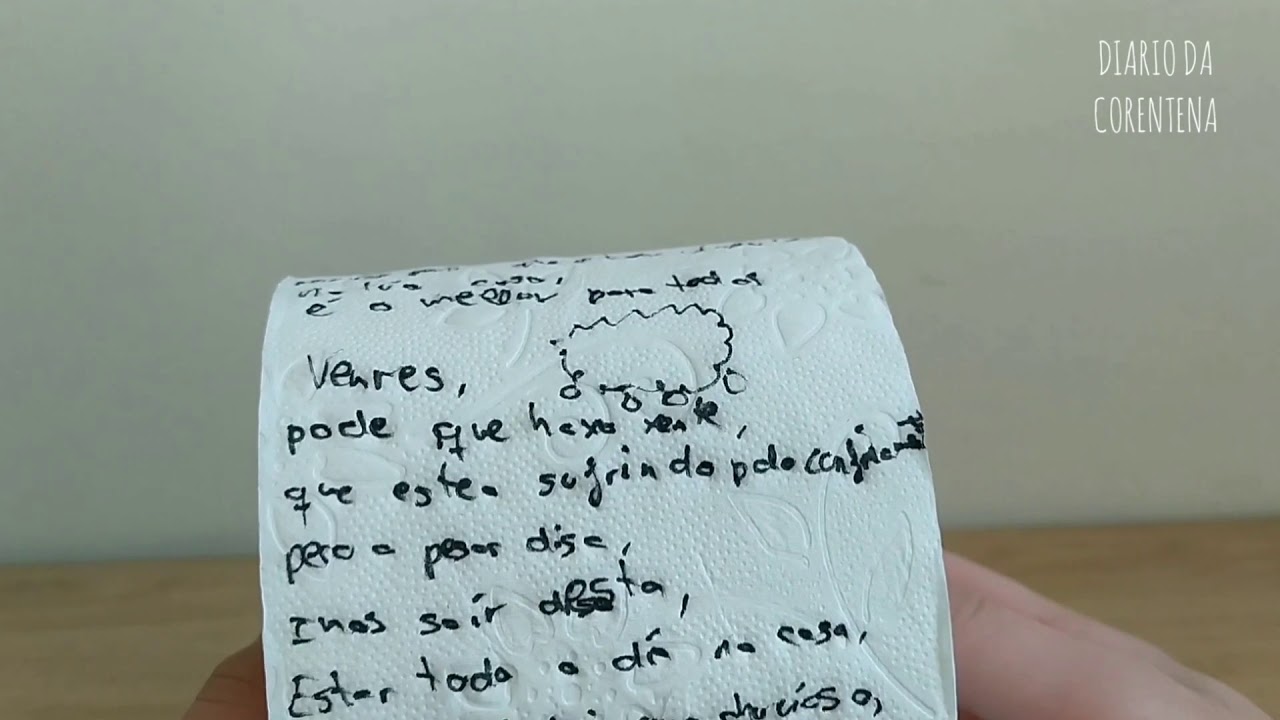 DIARIO DA
CORENTENA
casa,
é o mellor para todos
Venres,
pode que haxa xente,
que estea sufrindo polo confinamento
pero a pesar disa,
Imos sair desta,
Estar todo o día na casa,